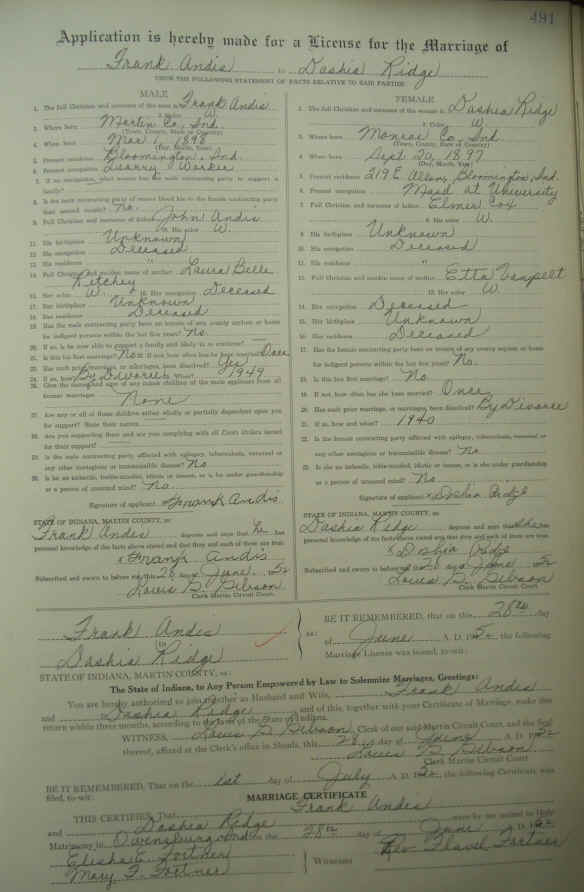 491
Application is hereby made for a License for the Marriage of
Frank Andis to Dashia Ridge
UPON THE FOLLOWING STATEMENT OF FACTS RELATIVE TO SAID PARTIES
MALE
1. The full Christian and surname of the man is Frank Andis
2. Color W.
3. Where born Martin Co., Ind.
(Town, County, State or Country)
4. When born Mar 1, 1898
(Day, Month, Year)
5. Present residence Bloomington, Ind.
6. Present occupation Quarry Worker
family?
than second cousin? No.
9. Full Christian and surname of father John Andis
10. His color W.
11. His birthplace Unknown
12. His occupation Deceased
13. His residence "
14. Full Christian and maiden name of mother Laura Belle
Ritchey
15. Her color W. 16. Her occupation Deceased
17. Her birthplace Unknown
18. Her residence Deceased
19. Has the male contracting party been an inmate of any county asylum or home
for indigent persons within the last five years? No.
20. If so, is he now able to support a family and likely to so continue?
21. Is this his first marriage? No 22. If not, how often has he been married? Once
23. Has such prior marriage, or marriages, been dissolved? Yes
24. If so, how? By Divorce When? 1949
former marriages None
for support? State their names
for their support?
any other contagious or transmissible disease? No
or a person of unsound mind? No.
Signature of applicant Frank Andis
STATE OF INDIANA, MARTIN COUNTY, ss:
Frank Andis deposes and says that he has
personal knowledge of the facts above stated and that they and each of them are true.
x Frank Andis
Subscribed and sworn to before me this 20 day June, 52
Louis B. Gibson
Clerk Martin Circuit Court.
FEMALE
1. The full Christian and surname of the woman is Dashia Ridge
2. Color W.
3. Where born Monroe Co., Ind.
(Town, County, State or Country)
4. When born Sept. 20, 1897
(Day, Month, Year)
5. Present residence 219 E. Allen, Bloomington, Ind.
6. Present occupation Maid at University
7. Full Christian and surname of father Elmer Cox
8. His color W.
9. His birthplace Unknown
10. His occupation Deceased
11. His residence "
12. Full Christian and maiden name of mother Etta Vanpelt
13. Her color W.
14. Her occupation Deceased
15. Her birthplace Unknown
16. Her residence Deceased
17. Has the female contracting party been an inmate of any county asylum or home
for indigent persons within the last five years? No.
18. Is this her first marriage? No
19. If not, how often has she been married? Once
20. Has such prior marriage, or marriages, been dissolved? By Divorce
21. If so, how and when? 1940
22. Is the female contracting party afflicted with epilepsy, tuberculosis, venereal or
any other contagious or transmissible disease? No
23. Is she an imbecile, feeble-minded, idiotic or insane, or is she under guardianship
or a person of unsound mind? No
Signature of applicant x Dashia Ridge
STATE OF INDIANA, MARTIN COUNTY, ss:
Dashia Ridge deposes and says that she has
personal knowledge of the facts above stated and that they and each of them are true.
x Dashia Ridge
Subscribed and sworn to before me 20 day June 52
Louis B. Gibson
Clerk Martin Circuit Court.
Frank Andis
to
Dashia Ridge
ss:
BE IT REMEMBERED, that on this 28th day
of June A. D. 1952, the following
Marriage License was issued, to-wit:
STATE OF INDIANA, MARTIN COUNTY, ss:
The State of Indiana, to Any Person Empowered by Law to Solemnize Marriages, Greetings:
You are hereby authorized to join together as Husband and Wife, Frank Andis
and Dashia Ridge and of this, together with your Certificate of Marriage, make due
return within three months, according to the laws of the State of Indiana.
WITNESS, Louis B. Gibson, Clerk of our said Martin Circuit Court, and the Seal
thereof, affixed at the Clerk's office in Shoals, this 28 day of June A. D. 1952
Louis B. Gibson
Clerk Martin Circuit Court
BE IT REMEMBERED, That on the 1st day of July A. D. 1952, the following Certificate was
filed, to-wit:
MARRIAGE CERTIFICATE
THIS CERTIFIES, That Frank Andis
and Dashia Ridge were by me united in Holy
Matrimony in Owensburg, Ind on the 28th day of June A. D. 1952
Elisha E. Fortner
Mary F. Fortner
Witnesses
Rev Flavel Fortner